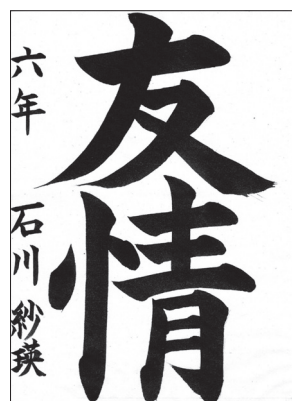 友情
六年 石川 紗瑛